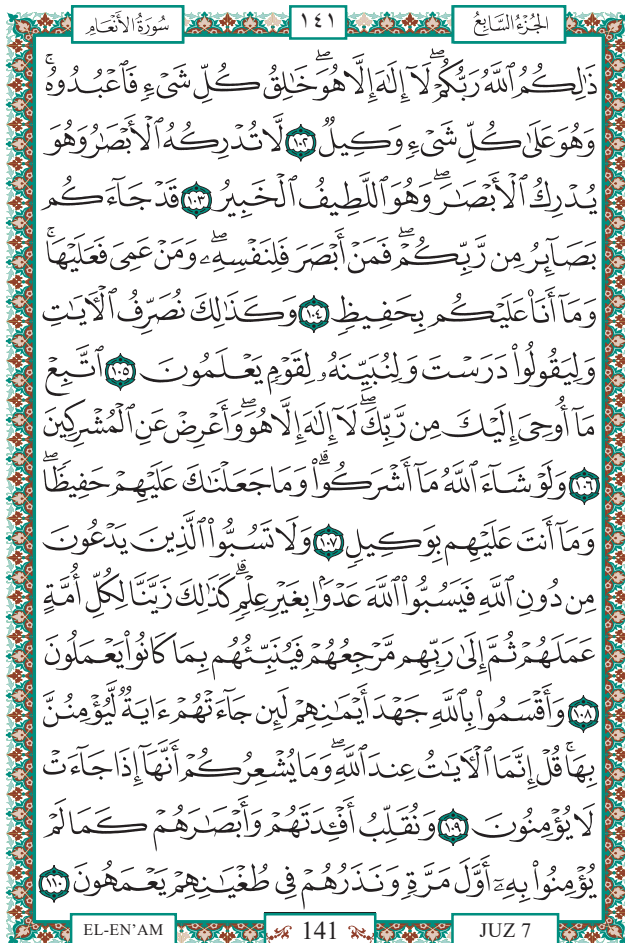 سُورَةُ الأَنْعَامِ ١٤١ الجُزْءُ السَّابِعُ
ذَٰلِكُمُ ٱللَّهُ رَبُّكُمْۖ لَآ إِلَٰهَ إِلَّا هُوَۖ خَٰلِقُ كُلِّ شَىْءٍ فَٱعْبُدُوهُۚ
وَهُوَ عَلَىٰ كُلِّ شَىْءٍ وَكِيلٌ ١٠٢ لَّا تُدْرِكُهُ ٱلْأَبْصَٰرُ وَهُوَ
يُدْرِكُ ٱلْأَبْصَٰرَۖ وَهُوَ ٱللَّطِيفُ ٱلْخَبِيرُ ١٠٣ قَدْ جَآءَكُم
بَصَآئِرُ مِن رَّبِّكُمْۖ فَمَنْ أَبْصَرَ فَلِنَفْسِهِۦۖ وَمَنْ عَمِىَ فَعَلَيْهَاۚ
وَمَآ أَنَا۠ عَلَيْكُم بِحَفِيظٍ ١٠٤ وَكَذَٰلِكَ نُصَرِّفُ ٱلْءَايَٰتِ
وَلِيَقُولُوا۟ دَرَسْتَ وَلِنُبَيِّنَهُۥ لِقَوْمٍ يَعْلَمُونَ ١٠٥ ٱتَّبِعْ
مَآ أُوحِىَ إِلَيْكَ مِن رَّبِّكَۖ لَآ إِلَٰهَ إِلَّا هُوَۖ وَأَعْرِضْ عَنِ ٱلْمُشْرِكِينَ
١٠٦ وَلَوْ شَآءَ ٱللَّهُ مَآ أَشْرَكُوا۟ۗ وَمَا جَعَلْنَٰكَ عَلَيْهِمْ حَفِيظًاۖ
وَمَآ أَنتَ عَلَيْهِم بِوَكِيلٍ ١٠٧ وَلَا تَسُبُّوا۟ ٱلَّذِينَ يَدْعُونَ
مِن دُونِ ٱللَّهِ فَيَسُبُّوا۟ ٱللَّهَ عَدْوًۢا بِغَيْرِ عِلْمٍۗ كَذَٰلِكَ زَيَّنَّا لِكُلِّ أُمَّةٍ
عَمَلَهُمْ ثُمَّ إِلَىٰ رَبِّهِم مَّرْجِعُهُمْ فَيُنَبِّئُهُم بِمَا كَانُوا۟ يَعْمَلُونَ
١٠٨ وَأَقْسَمُوا۟ بِٱللَّهِ جَهْدَ أَيْمَٰنِهِمْ لَئِن جَآءَتْهُمْ ءَايَةٌ لَّيُؤْمِنُنَّ
بِهَاۚ قُلْ إِنَّمَا ٱلْءَايَٰتُ عِندَ ٱللَّهِۖ وَمَا يُشْعِرُكُمْ أَنَّهَآ إِذَا جَآءَتْ
لَا يُؤْمِنُونَ ١٠٩ وَنُقَلِّبُ أَفْـِٔدَتَهُمْ وَأَبْصَٰرَهُمْ كَمَا لَمْ
يُؤْمِنُوا۟ بِهِۦٓ أَوَّلَ مَرَّةٍ وَنَذَرُهُمْ فِى طُغْيَٰنِهِمْ يَعْمَهُونَ ١١٠
EL-EN'AM 141 JUZ 7